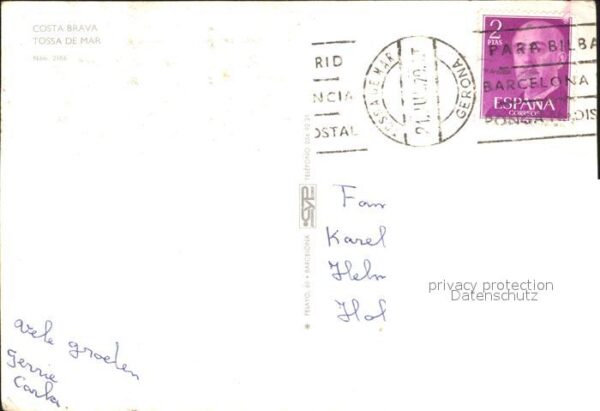 COSTA BRAVA
TOSSA DE MAR
Núm. 2186
RID
NCIA
OSTAL
TOSSA DE MAR
GERONA
2 PTAS
PARA BILBA
BARCELONA
ESPAÑA
CORREOS
PONGA DIS
Fam
Karel
Helm
Hol
privacy protection
Datenschutz
PELAYO, 60 • BARCELONA
CYP
TELÉFONO
vele groeten
Gerrie
Carla.